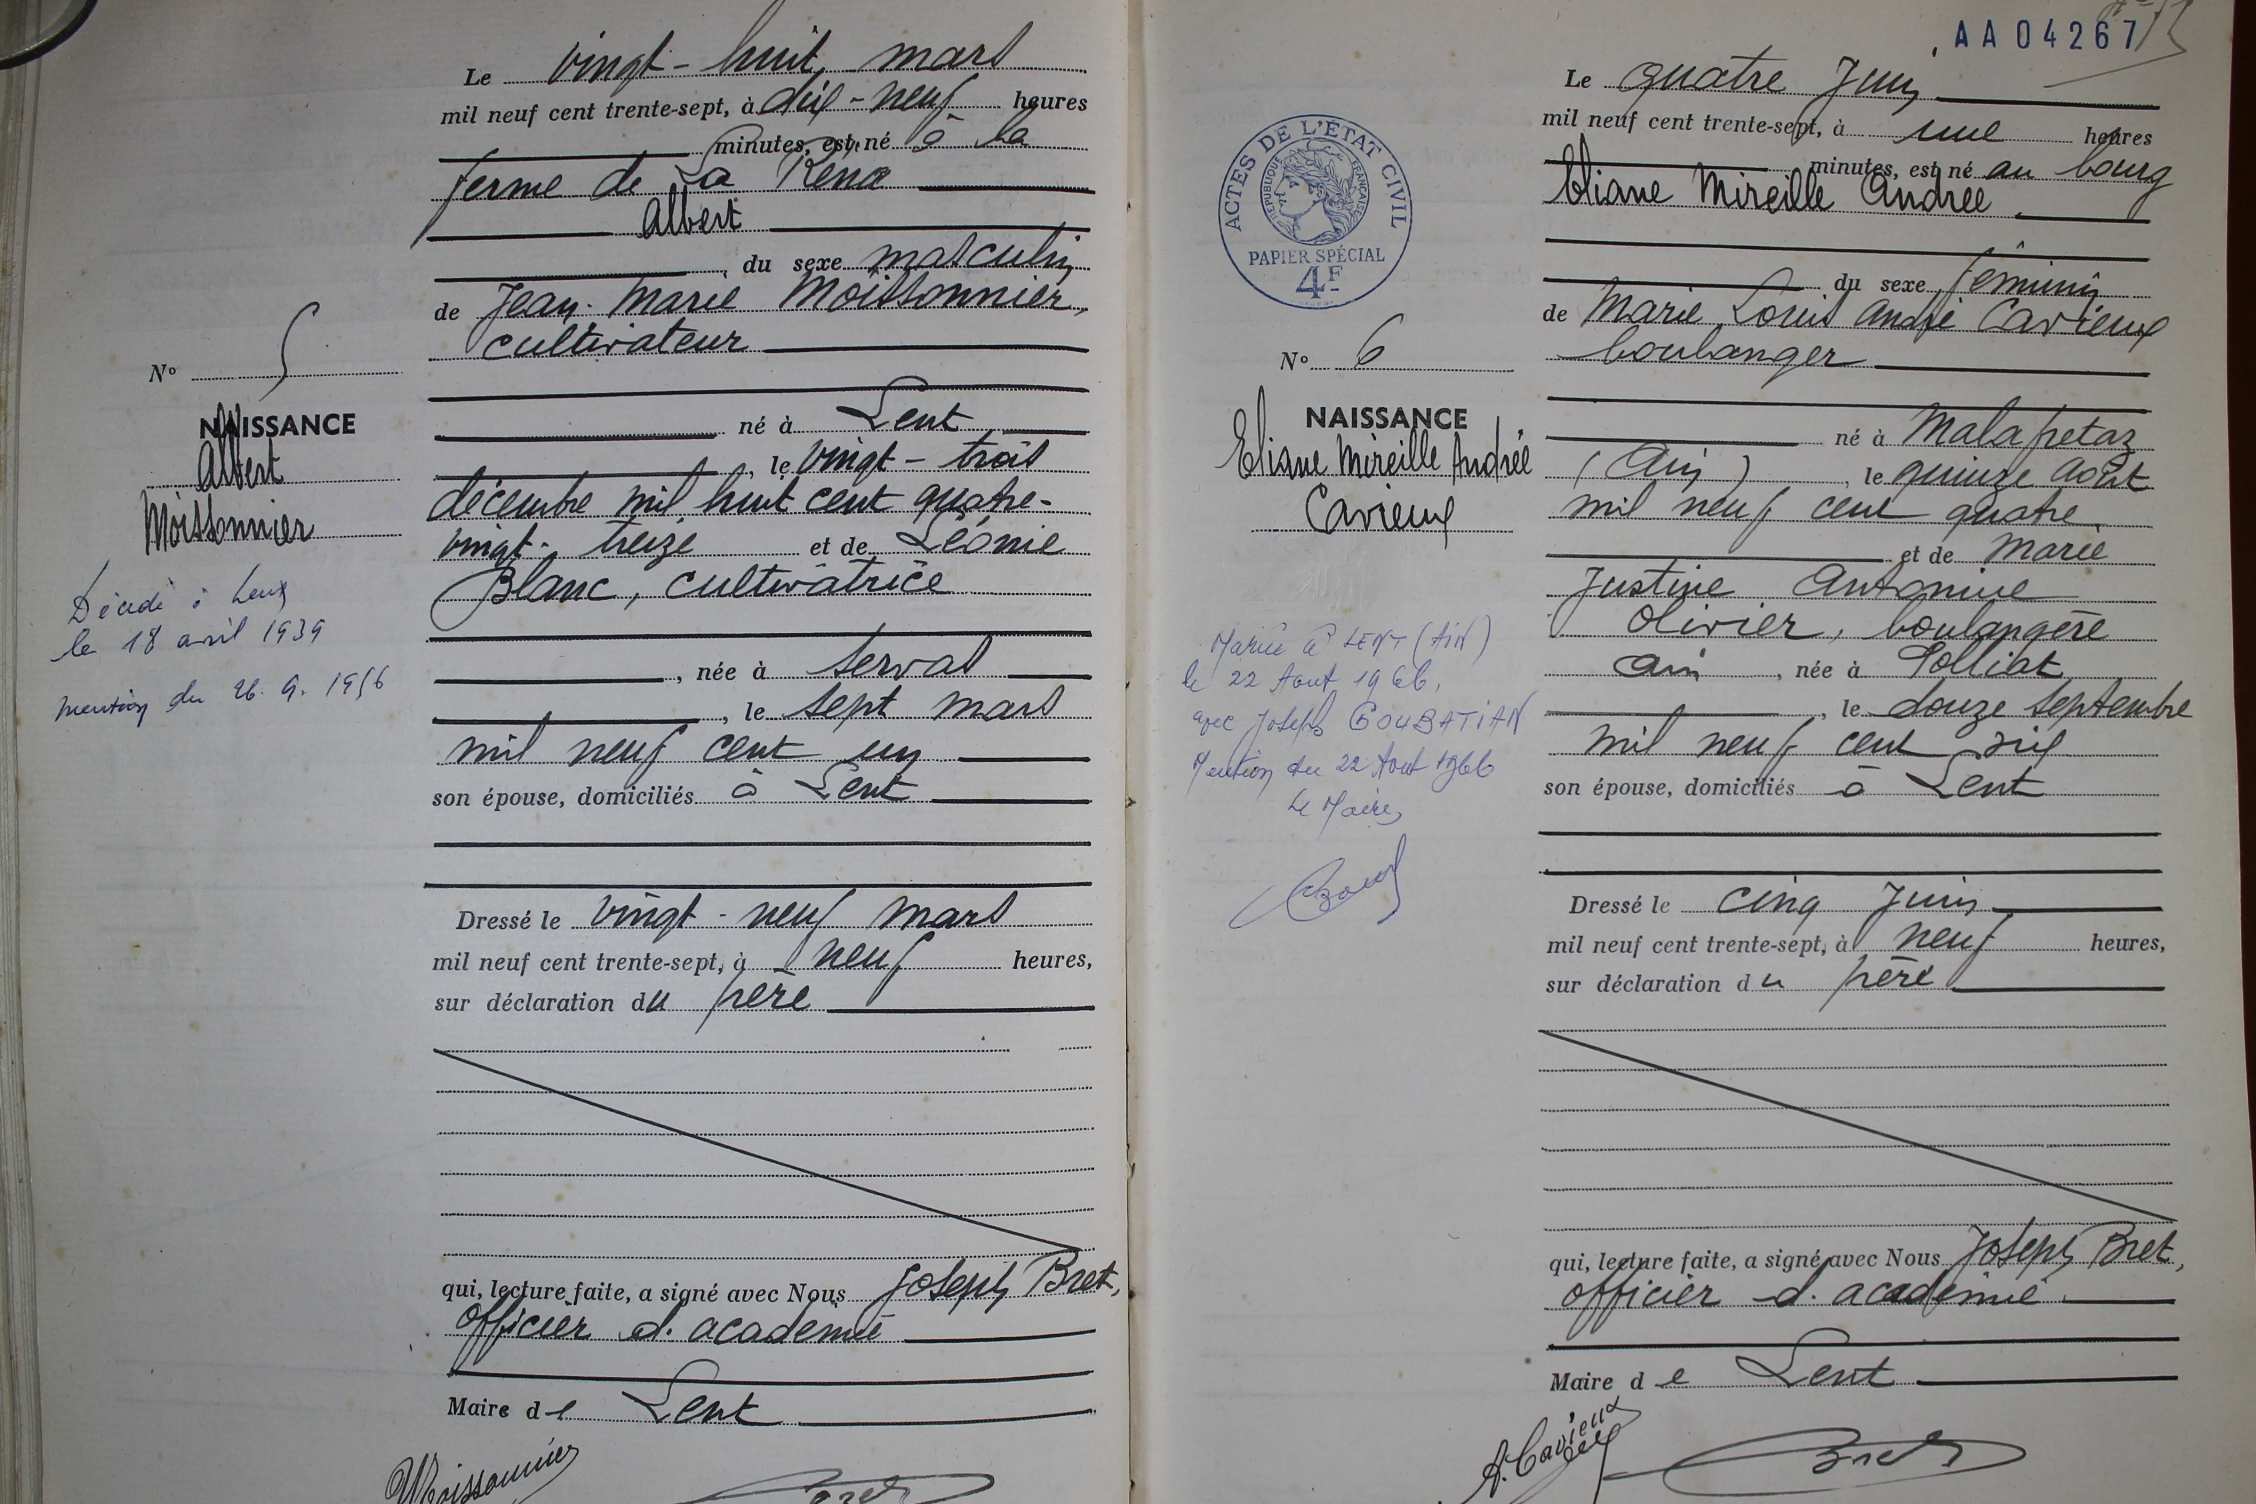 Le vingt-huit mars
mil neuf cent trente-sept, à dix-neuf heures
minutes, est né à la
ferme de La Réna
Albert
, du sexe masculin
de Jean-Marie Moissonnier,
cultivateur
né à Lent
, le vingt-trois
décembre mil huit cent quatre-
vingt-treize et de Léonie
Blanc, cultivatrice
, née à Servas
, le sept mars
mil neuf cent un
son épouse, domiciliés à Lent
Dressé le vingt-neuf mars
mil neuf cent trente-sept, à neuf heures,
sur déclaration du père
qui, lecture faite, a signé avec Nous Joseph Bret,
officier d'académie
Maire de Lent
Moissonnier
Bret
N° 5
NAISSANCE
Albert
Moissonnier
Décédé à Lent
le 18 avril 1939
mention du 26.9.1956
AA04267
Le quatre Juin
mil neuf cent trente-sept, à une heures
minutes, est né au bourg
Eliane Mireille Andrée
du sexe féminin
de Marie Louis André Cavieux
boulanger
né à Malafretaz
(Ain), le quinze août
mil neuf cent quatre
et de Marie
Justine Antonine
Olivier, boulangère
Ain, née à Polliat
, le douze septembre
mil neuf cent dix
son épouse, domiciliés à Lent
Dressé le cinq Juin
mil neuf cent trente-sept, à neuf heures,
sur déclaration du père
qui, lecture faite, a signé avec Nous Joseph Bret,
officier d'académie
Maire de Lent
A. Cavieux
Bret
ACTES DE L'ÉTAT CIVIL
RÉPUBLIQUE FRANÇAISE
PAPIER SPÉCIAL
4F
N° 6
NAISSANCE
Eliane Mireille Andrée
Cavieux
Mariée à LENT (Ain)
le 22 Aout 1966,
avec Joseph GOUBATIAN
Mention du 22 Aout 1966
Le Maire,